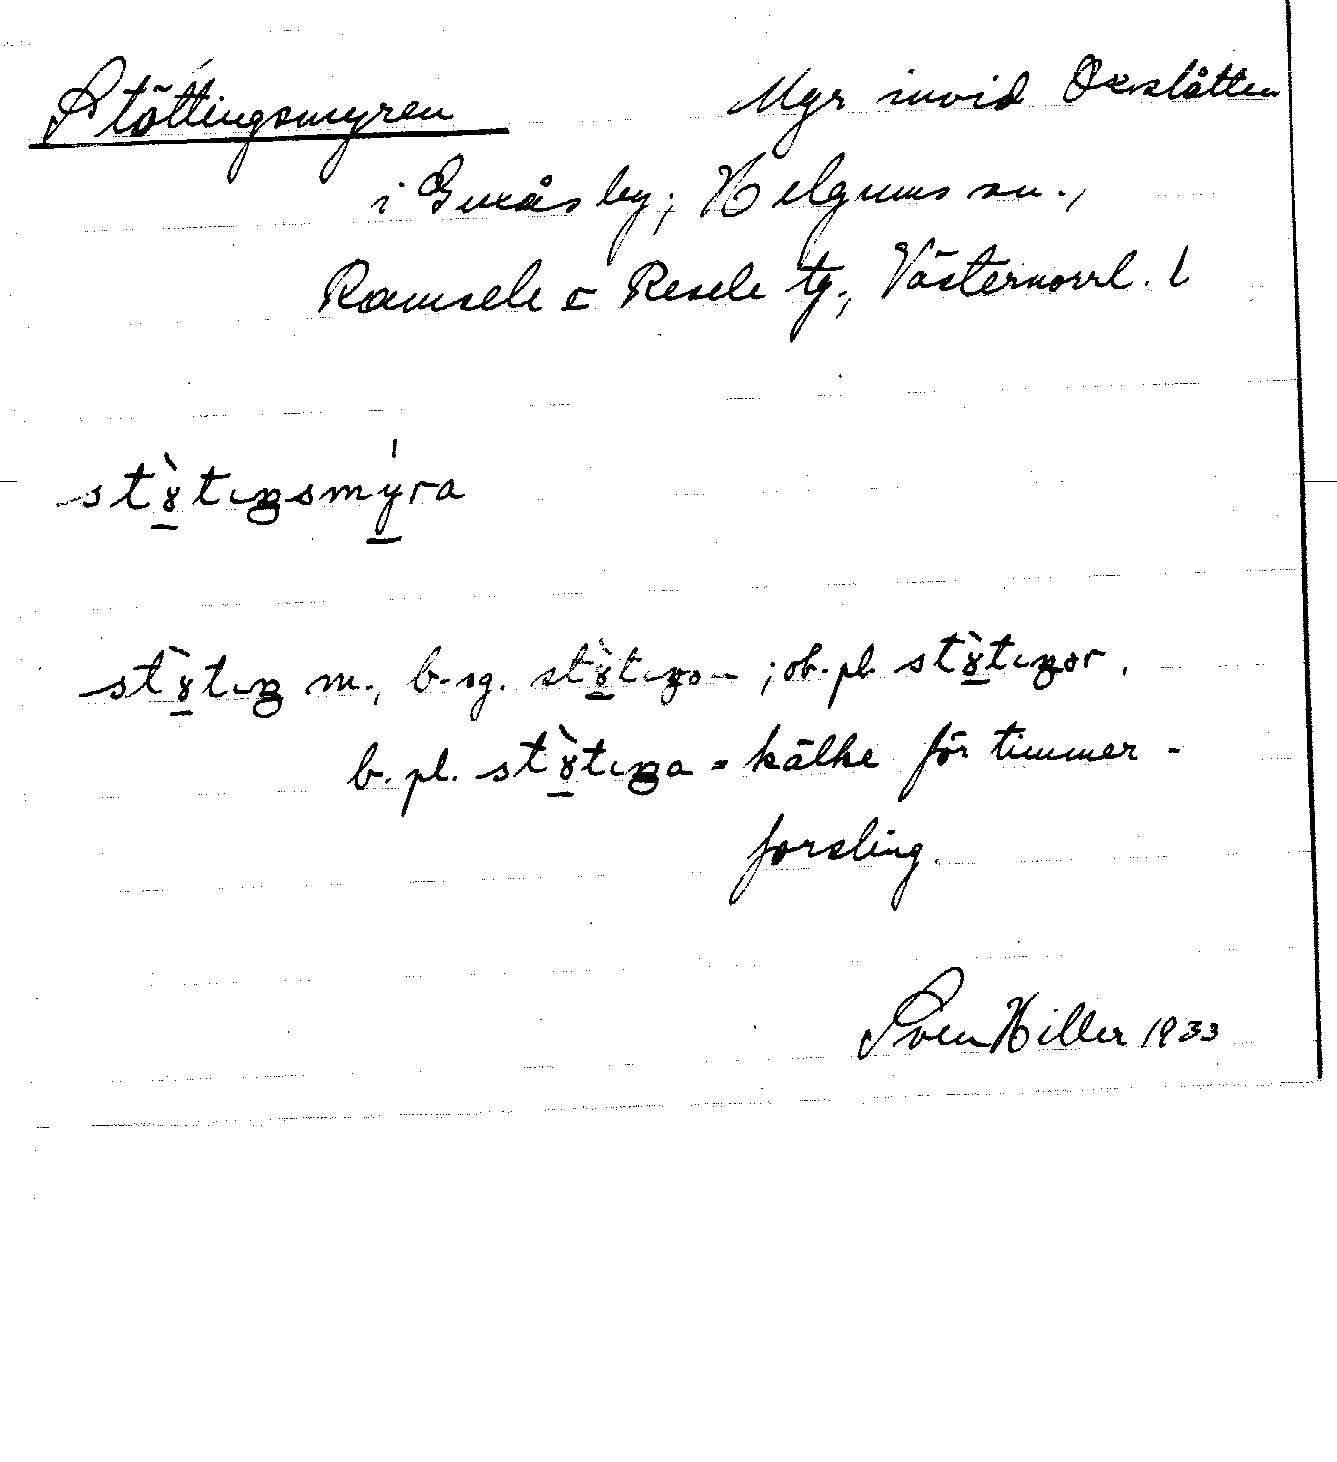 Stöttingsmyren Myr invid Oxslåtten
i Guxås by, Helgums sn.,
Ramsele o Resele tg., Västernorrl. l
stɤ̀tıŋsmýra
stɤ̀tıŋ m., b. sg. stɤ̀tıŋən; ob. pl. stɤ̀tıŋər,
b. pl. stɤ̀tıŋa = kälke för timmer-
forsling.
Sven Hiller 1933